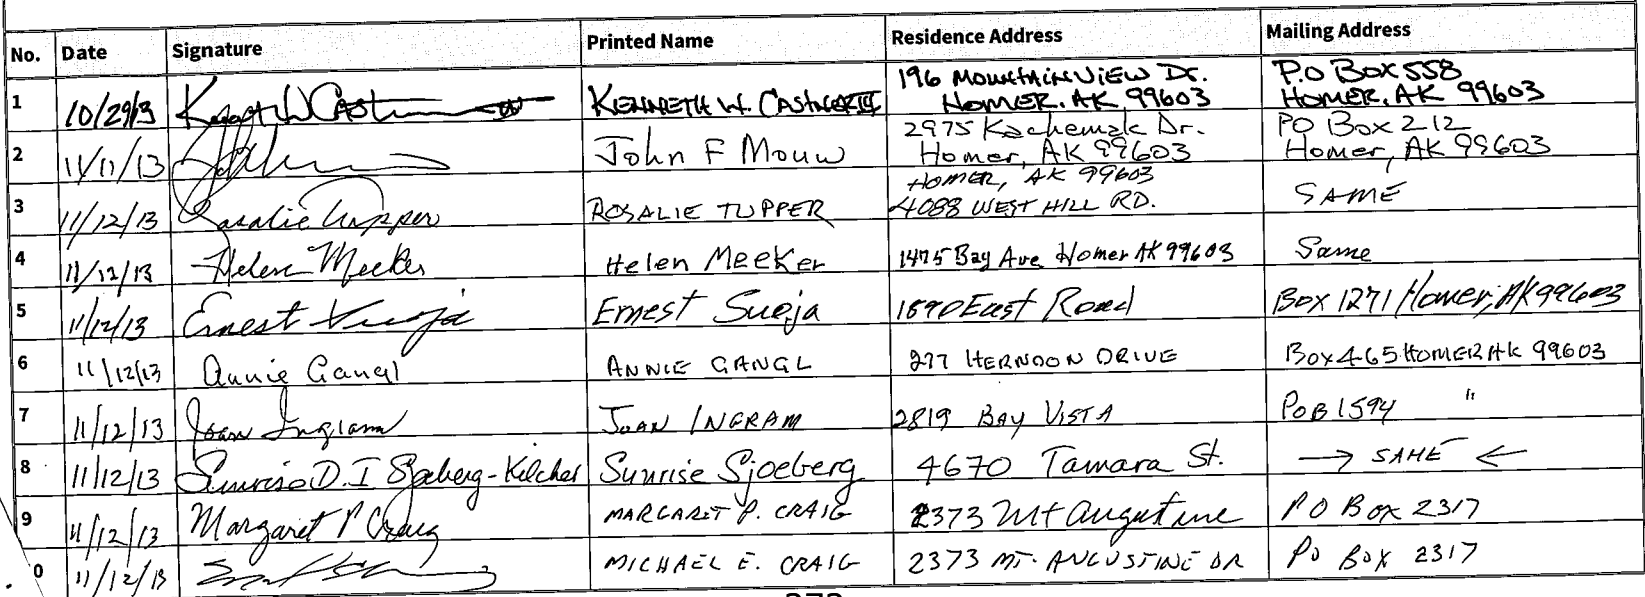 No. Date Signature Printed Name Residence Address Mailing Address
1 10/29/13 KENNETH W. CASTNER III 196 MOUNTAINVIEW Dr. HOMER. AK 99603 P.O BOX 558 HOMER, AK 99603
2 11/11/13 John F Mouw 2975 Kachemak Dr. Homer, AK 99603 PO Box 212 Homer, AK 99603
3 11/12/13 Rosalie Tupper ROSALIE TUPPER HOMER, AK 99603 4088 WEST HILL RD. SAME
4 11/12/13 Helen Meeker Helen Meeker 1475 Bay Ave Homer AK 99603 Same
5 11/12/13 Ernest Suoja Ernest Suoja 1890 East Road Box 1271 Homer, AK 99603
6 11/12/13 Annie Gangl ANNIE GANGL 277 HERNDON DRIVE Box 465 HOMER AK 99603
7 11/12/13 Joan Ingram JOAN INGRAM 2819 BAY VISTA POB 1594 "
8 11/12/13 Sunrise D. I Sjoeberg-Kilcher Sunrise Sjoeberg 4670 Tamara St. → SAME ←
9 11/12/13 Margaret P Craig MARGARET P. CRAIG 2373 Mt Augustine PO Box 2317
0 11/12/13 MICHAEL E. CRAIG 2373 MT. AUGUSTINE DR PO BOX 2317